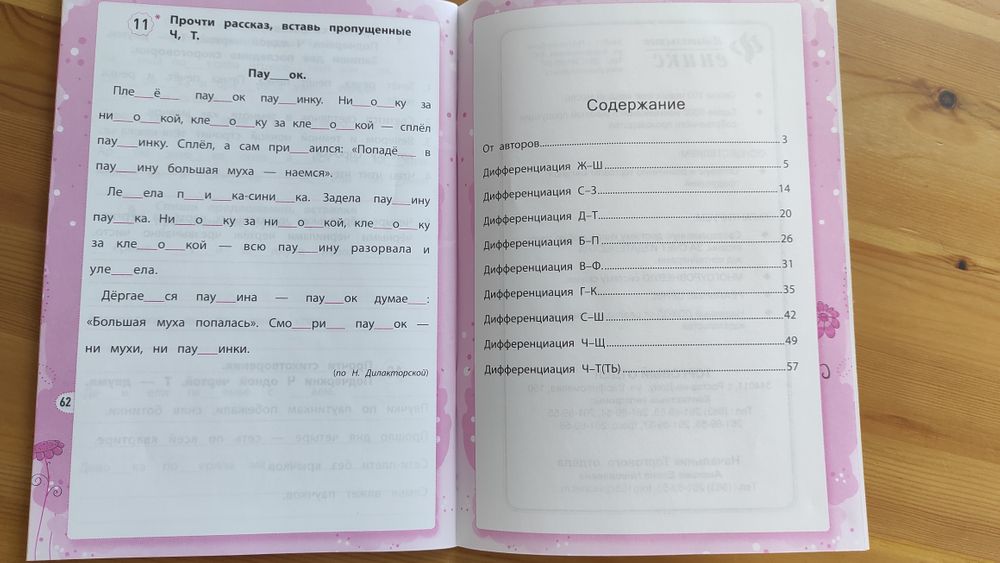 11* Прочти рассказ, вставь пропущенные
Ч, Т.
Пау___ок.
Пле___ё___ пау___ок пау___инку. Ни___о___ку за
ни___о___кой, кле___о___ку за кле___о___кой — сплёл
пау___инку. Сплёл, а сам при___аился: «Попадё___ в
пау___ину большая муха — наемся».
Ле___ела п___и___ка-сини___ка. Задела пау___ину
пау___ка. Ни___о___ку за ни___о___кой, кле___о___ку
за кле___о___кой — всю пау___ину разорвала и
уле___ела.
Дёргае___ся пау___ина — пау___ок думае___:
«Большая муха попалась». Смо___ри___ пау___ок —
ни мухи, ни пау___инки.
(по Н. Дилакторской)
62
Содержание
От авторов 3
Дифференциация Ж–Ш 5
Дифференциация С–З 14
Дифференциация Д–Т 20
Дифференциация Б–П 26
Дифференциация В–Ф 31
Дифференциация Г–К 35
Дифференциация С–Ш 42
Дифференциация Ч–Щ 49
Дифференциация Ч–Т(ТЬ) 57